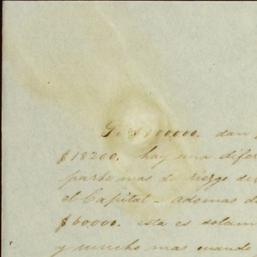 Si $100000. dan
$18200. hay una difer
parte mas de riezgo de
el Capital - ademas d
$60000. esta es solam
y mucho mas cuando